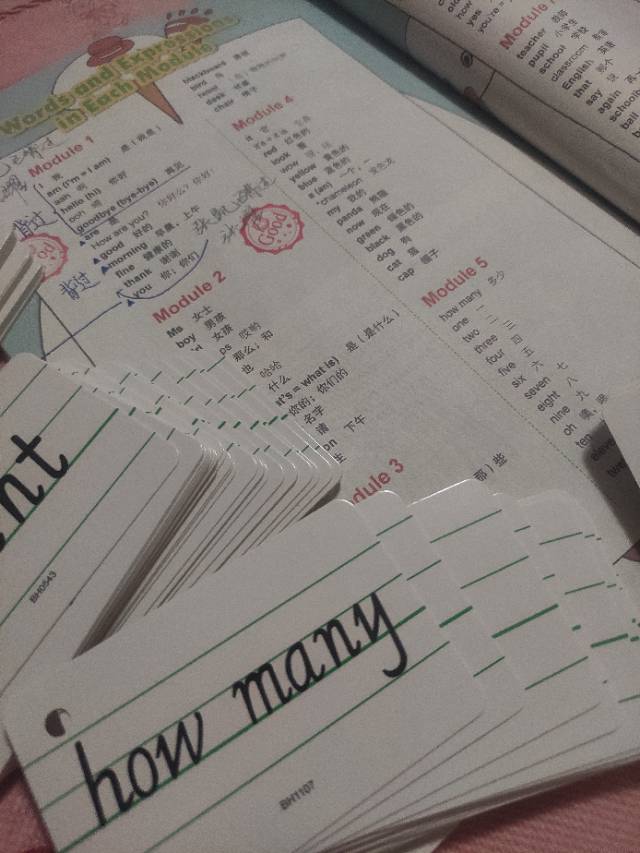 Words and Expressions
in Each Module
Module 1
I 我
am (I'm = I am) 是（我是）
hello (hi) 你好
goodbye (bye-bye) 再见
are 是
How are you? 你好么？你好！
good 好的
morning 早晨，上午
fine 健康的
thank 谢谢
you 你；你们
背过
背过
Good
Module 2
Ms 女士
boy 男孩
女孩
哎哟
那么；和
也
哈哈
什么
it's = what is) 是（是什么）
你的；你们的
名字
请
on 下午
生
dule 3
那）些
blackboard 黑板
bird 鸟
desk 书桌
chair 椅子
Module 4
it 它
red 红色的
look 看
wow 哇
yellow 黄色的
blue 蓝色的
a (an) 一个
chameleon 变色龙
my 我的
panda 熊猫
now 现在
green 绿色的
black 黑色的
dog 狗
cat 猫
cap 帽子
Module 5
how many 多少
one 一
two 二
three 三
four 四
five 五
six 六
seven 七
eight 八
nine 九
oh 噢，哦
ten
how
yes
you're =
Module
teacher 老师
pupil 小学生
school 学校
classroom 教室
English 英语
that 那个
say 说
again 再一
schoolb
ball
nt
BH0543
how many
BH1107